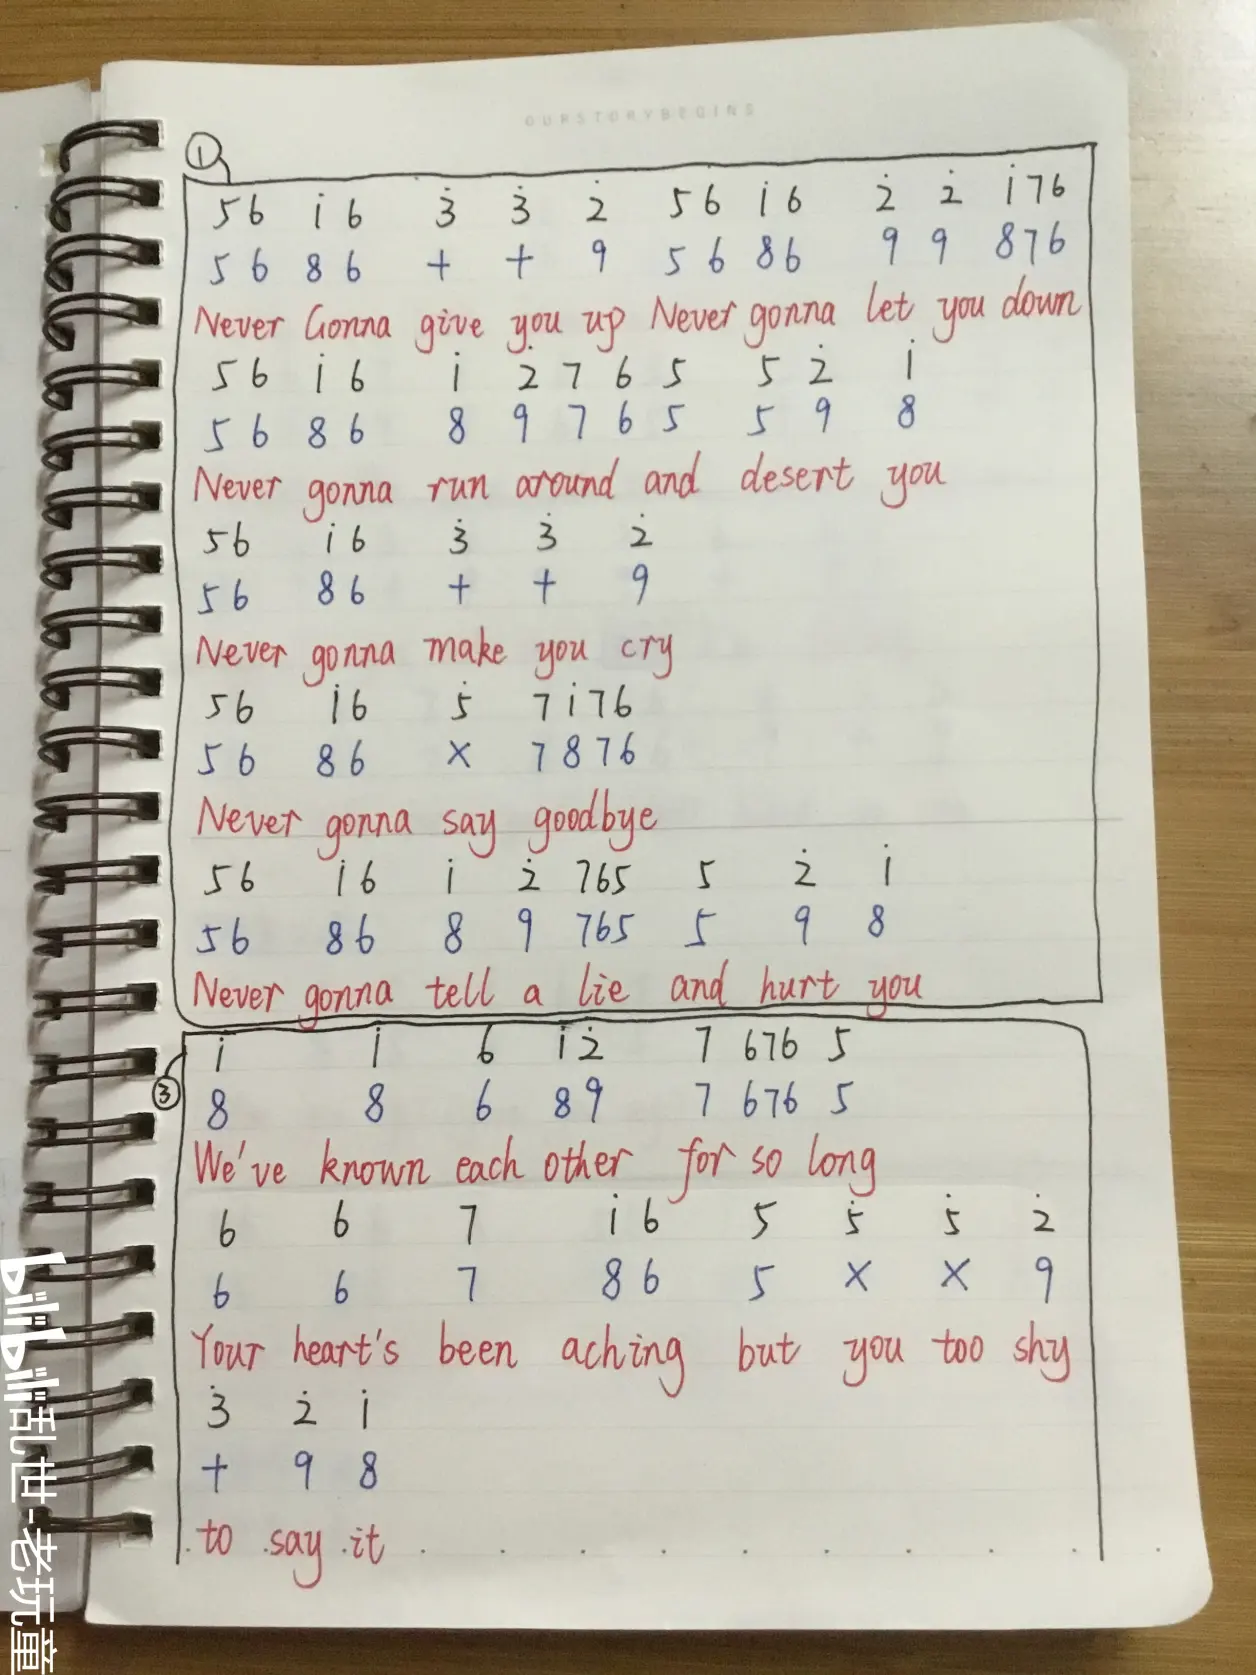 OURSTORYBEGINS
①
56 i̇6 3̇ 3̇ 2̇ 56 i̇6 2̇ 2̇ i̇76
56 86 + + 9 56 86 9 9 876
Never Gonna give you up Never gonna let you down
56 i̇6 i̇ 2̇ 7 6 5 5 2̇ i̇
56 86 8 9 7 6 5 5 9 8
Never gonna run around and desert you
56 i̇6 3̇ 3̇ 2̇
56 86 + + 9
Never gonna make you cry
56 i̇6 5̇ 7i̇76
56 86 × 7876
Never gonna say goodbye
56 i̇6 i̇ 2̇ 765 5 2̇ i̇
56 86 8 9 765 5 9 8
Never gonna tell a lie and hurt you
③
i̇ i̇ 6 i̇2̇ 7 676 5
8 8 6 89 7 676 5
We've known each other for so long
6 6 7 i̇6 5 5̇ 5̇ 2̇
6 6 7 86 5 × × 9
Your heart's been aching but you too shy
3̇ 2̇ i̇
+ 9 8
to say it
bilibili 乱世-老玩童